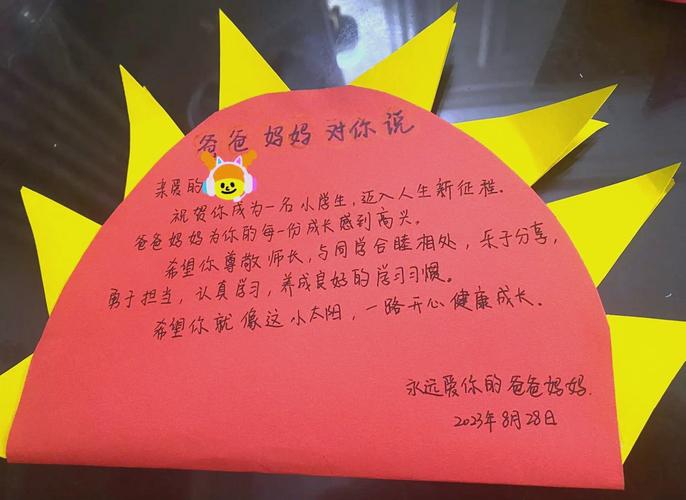 爸爸妈妈对你说
亲爱的
祝贺你成为一名小学生，迈入人生新征程。
爸爸妈妈为你的每一份成长感到高兴。
希望你尊敬师长，与同学合睦相处，乐于分享，
勇于担当，认真学习，养成良好的学习习惯。
希望你就像这小太阳，一路开心健康成长。
永远爱你的爸爸妈妈.
2023年8月28日